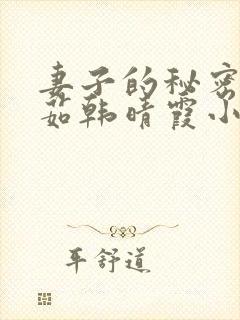 妻子的秘密
茹韩晴霞小
平舒道